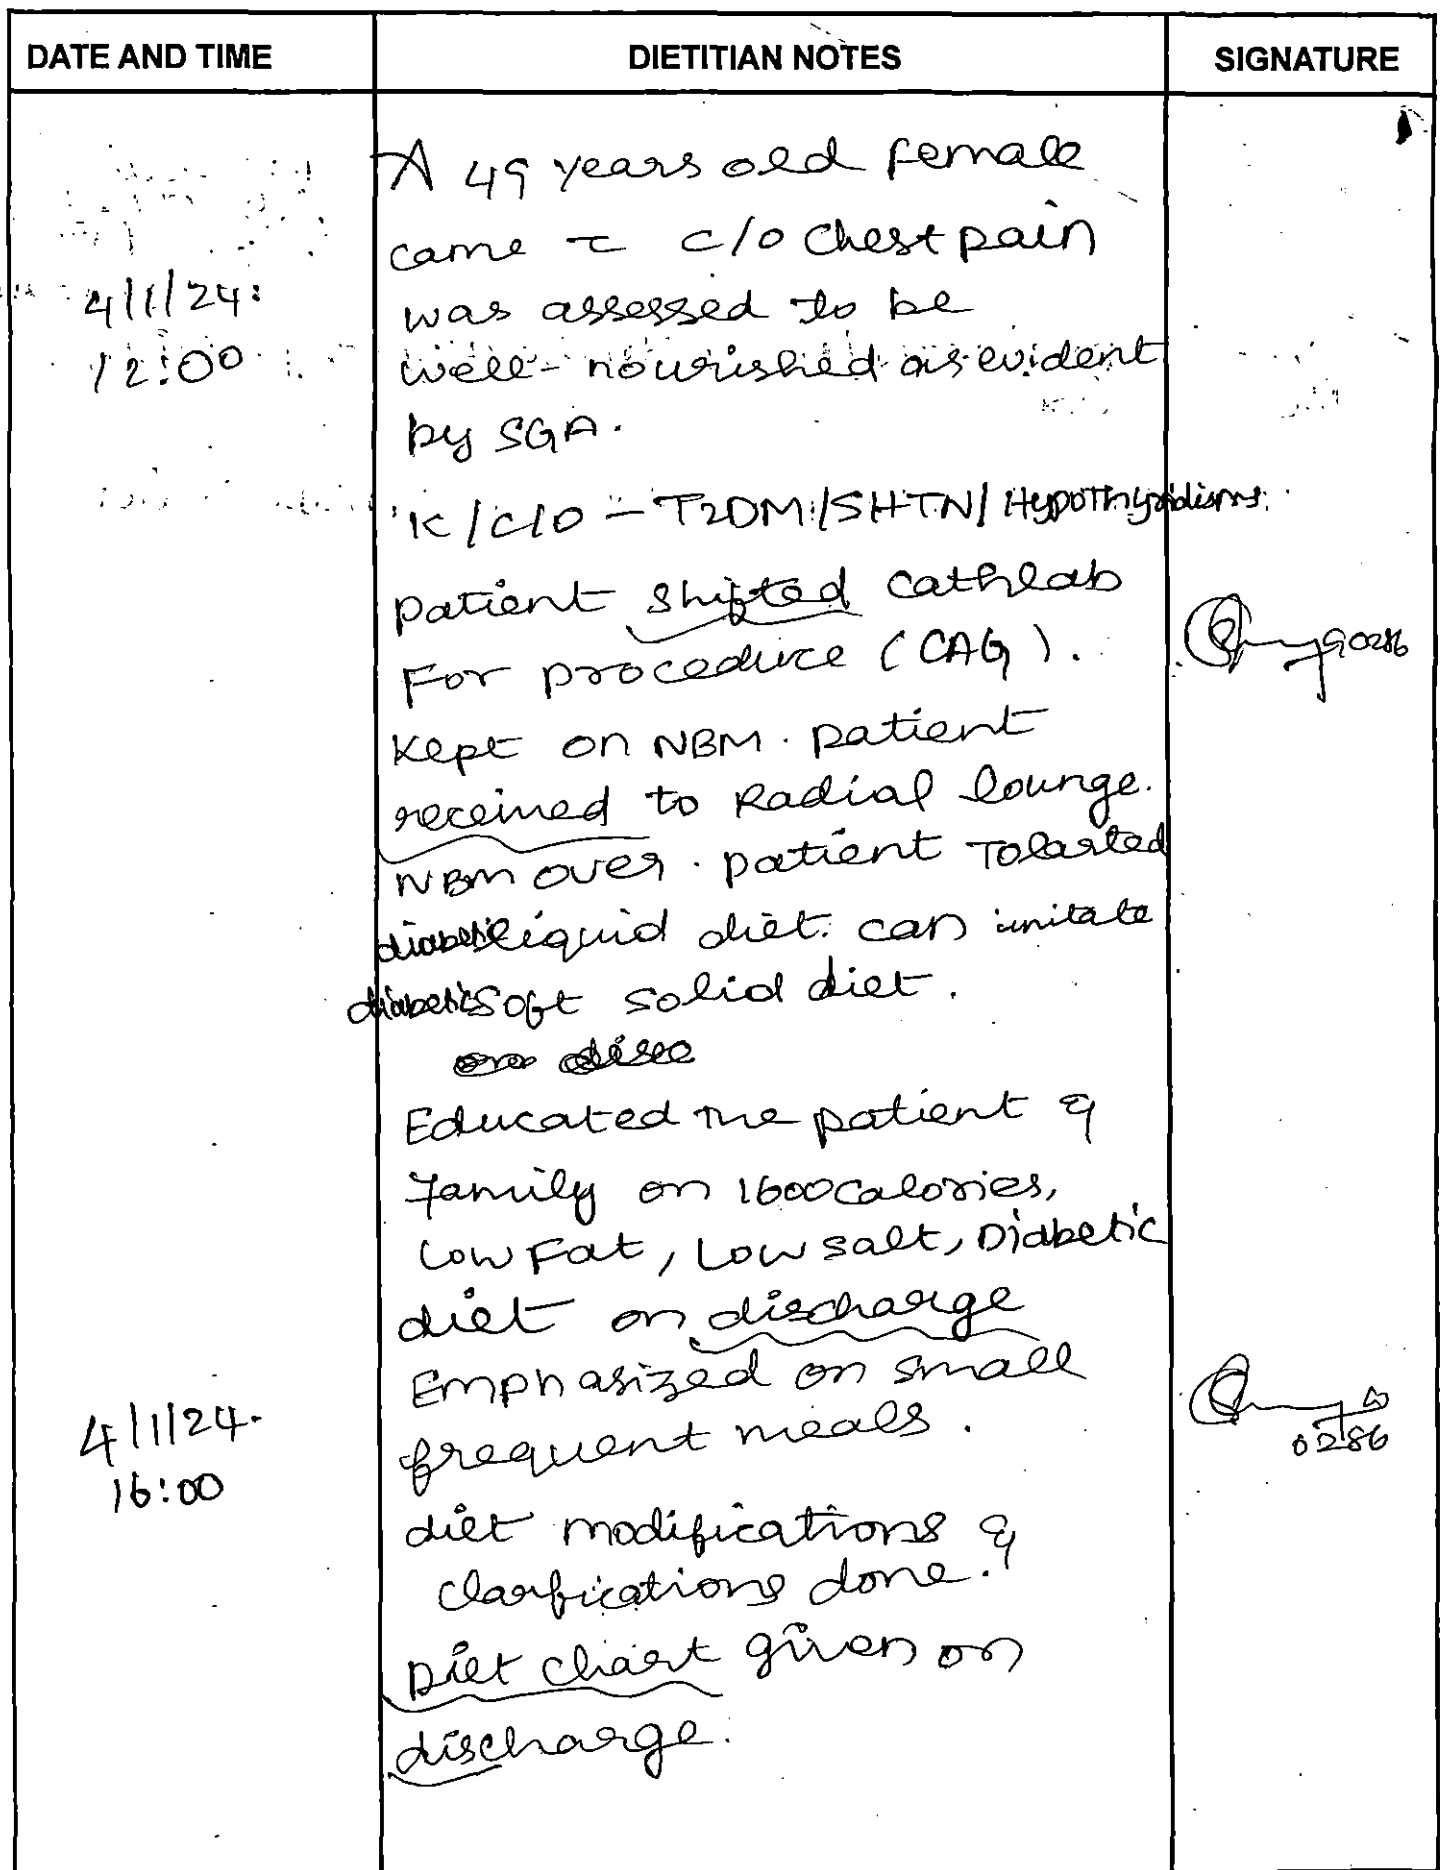 DATE AND TIME
DIETITIAN NOTES
SIGNATURE
A 49 years old female
came c̄ c/o chest pain
4/1/24:
was assessed to be
12:00
well-nourished as evident
by SGA.
K/C/O - T2DM/SHTN/Hypothyroidism.
patient shifted cathlab
For procedure (CAG).
0286
Kept on NBM. patient
received to Radial lounge.
NBM over. patient Tolarted
diabetic liquid diet. can initate
diabetic soft solid diet.
Educated the patient &
family on 1600calories,
Low Fat, Low salt, Diabetic
diet on discharge
Emphasized on small
4/1/24.
frequent meals.
0286
16:00
diet modifications &
clarfications done.
Diet chart given on
discharge.